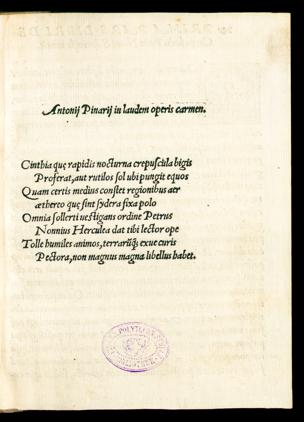 Antonij Pinarij in laudem operis carmen.
Cinthia quę rapidis nocturna crepuscula bigis
Proferat, aut rutilos sol ubi pungit equos
Quam certis medius constet regionibus aer
æthereo quę sint sydera fixa polo
Omnia sollerti uestigans ordine Petrus
Nonnius Herculea dat tibi lector ope
Tolle humiles animos, terrarūq; exue curis
Pectora, non magnus magna libellus habet.